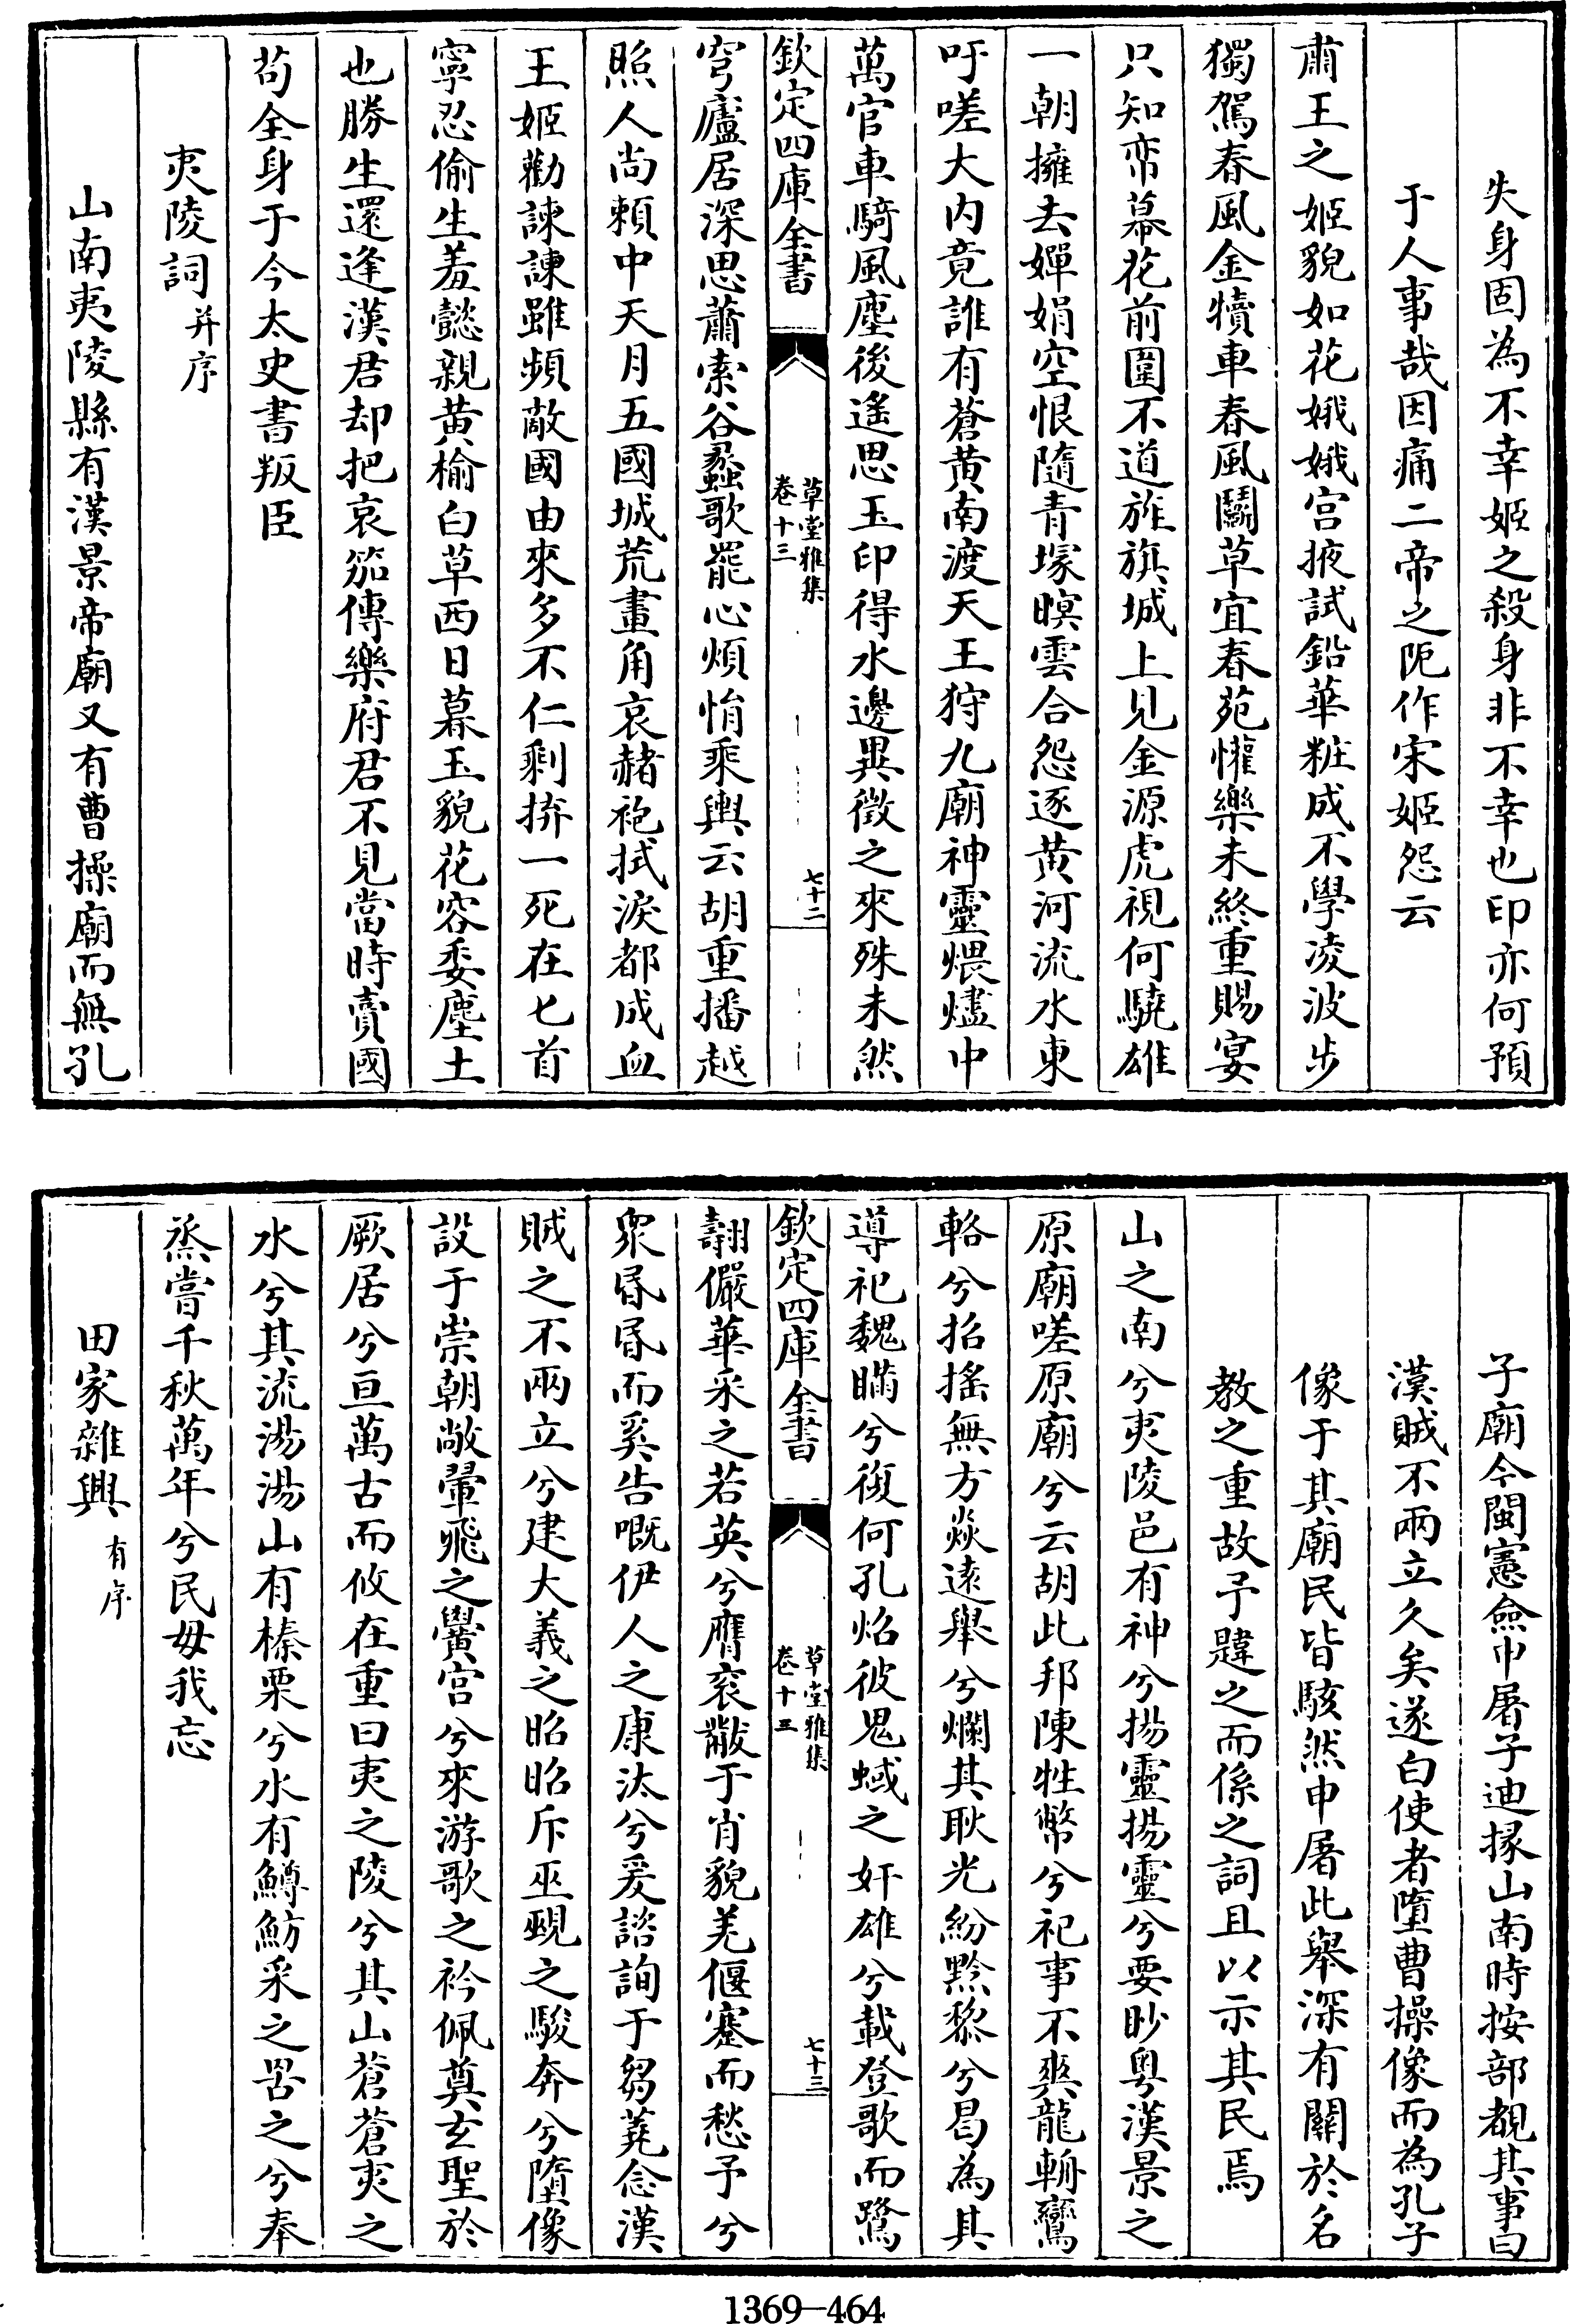 失身固為不幸姬之殺身非不幸也印亦何預
于人事哉因痛二帝之阨作宋姬怨云
肅王之姬貌如花娥娥宫掖試鉛華粧成不學凌波步
獨駕春風金犢車春風鬬草宜春苑懽樂未終重賜宴
只知帟幕花前圍不道旌旗城上見金源虎視何驍雄
一朝擁去嬋娟空恨隨青塚暝雲合怨逐黄河流水東
吁嗟大内竟誰有蒼黄南渡天王狩九廟神靈煨燼中
萬官車騎風塵後遙思玉印得水邊異徵之來殊未然
欽定四庫全書
草堂雅集
卷十三
七十二
穹廬居深思蕭索谷蠡歌罷心煩悁乘輿云胡重播越
照人尚頼中天月五國城荒畫角哀赭袍拭淚都成血
王姬勸諫諫雖頻敵國由來多不仁剩拚一死在匕首
寧忍偷生羞懿親黄榆白草西日暮玉貌花容委塵土
也勝生還逢漢君却把哀笳傳樂府君不見當時賣國
茍全身于今太史書叛臣
夷陵詞并序
山南夷陵縣有漢景帝廟又有曹操廟而無孔
子廟今閩憲僉巾屠子迪掾山南時按部覩其事曰
漢賊不兩立久矣遂白使者墮曹操像而為孔子
像于其廟民皆駭然申屠此舉深有關於名
教之重故予韙之而係之詞且以示其民焉
山之南兮夷陵邑有神兮揚靈揚靈兮要眇粤漢景之
原廟嗟原廟兮云胡此邦陳牲幣兮祀事不爽龍輈鸞
輅兮招搖無方焱逺舉兮爛其耿光紛黔黎兮曷為其
導祀魏瞞兮復何孔焰彼鬼蜮之奸雄兮載登歌而鷺
欽定四庫全書
草堂雅集
卷十三
七十三
翿儼華采之若英兮膺衮黻于肖貌羌偃蹇而愁予兮
衆昬昬而奚告嘅伊人之康汰兮爰諮詢于芻蕘念漢
賊之不兩立兮建大義之昭昭斥巫覡之駿奔兮隳像
設于崇朝敞翬飛之黌宫兮來游歌之衿佩奠玄聖於
厥居兮亘萬古而攸在重曰夷之陵兮其山蒼蒼夷之
水兮其流湯湯山有榛栗兮水有鱒魴采之罟之兮奉
烝嘗千秋萬年兮民毋我忘
田家雜興有序
1369—464